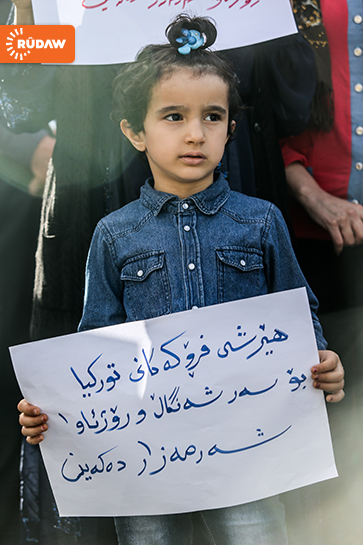 RÛDAW
هێرشی فڕۆکەکانی تورکیا
بۆ سەر شەنگال و رۆژئاوا
شەرمەزار دەکەین